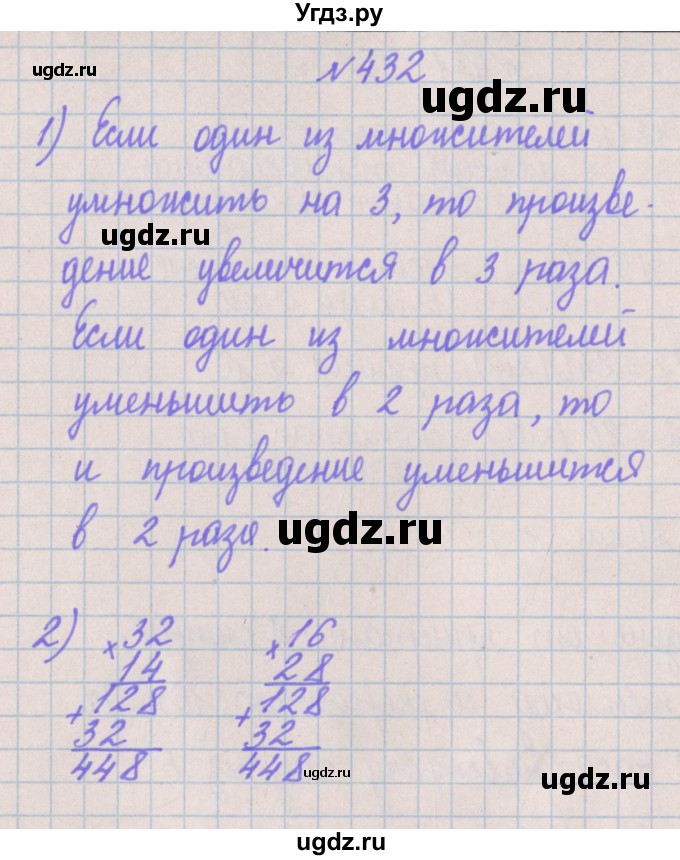 Угдз.ру
ugdz.ru
№432
ugdz.ru
1) Если один из множителей
умножить на 3, то произве-
ugdz.ru
дение увеличится в 3 раза.
Если один из множителей
уменьшить в 2 раза, то
и произведение уменьшится
в 2 раза.
ugdz.ru
2) × 32 × 16
14 28
+ 128 + 128
32 32
448 448
ugdz.ru
ugdz.ru
ugdz.ru